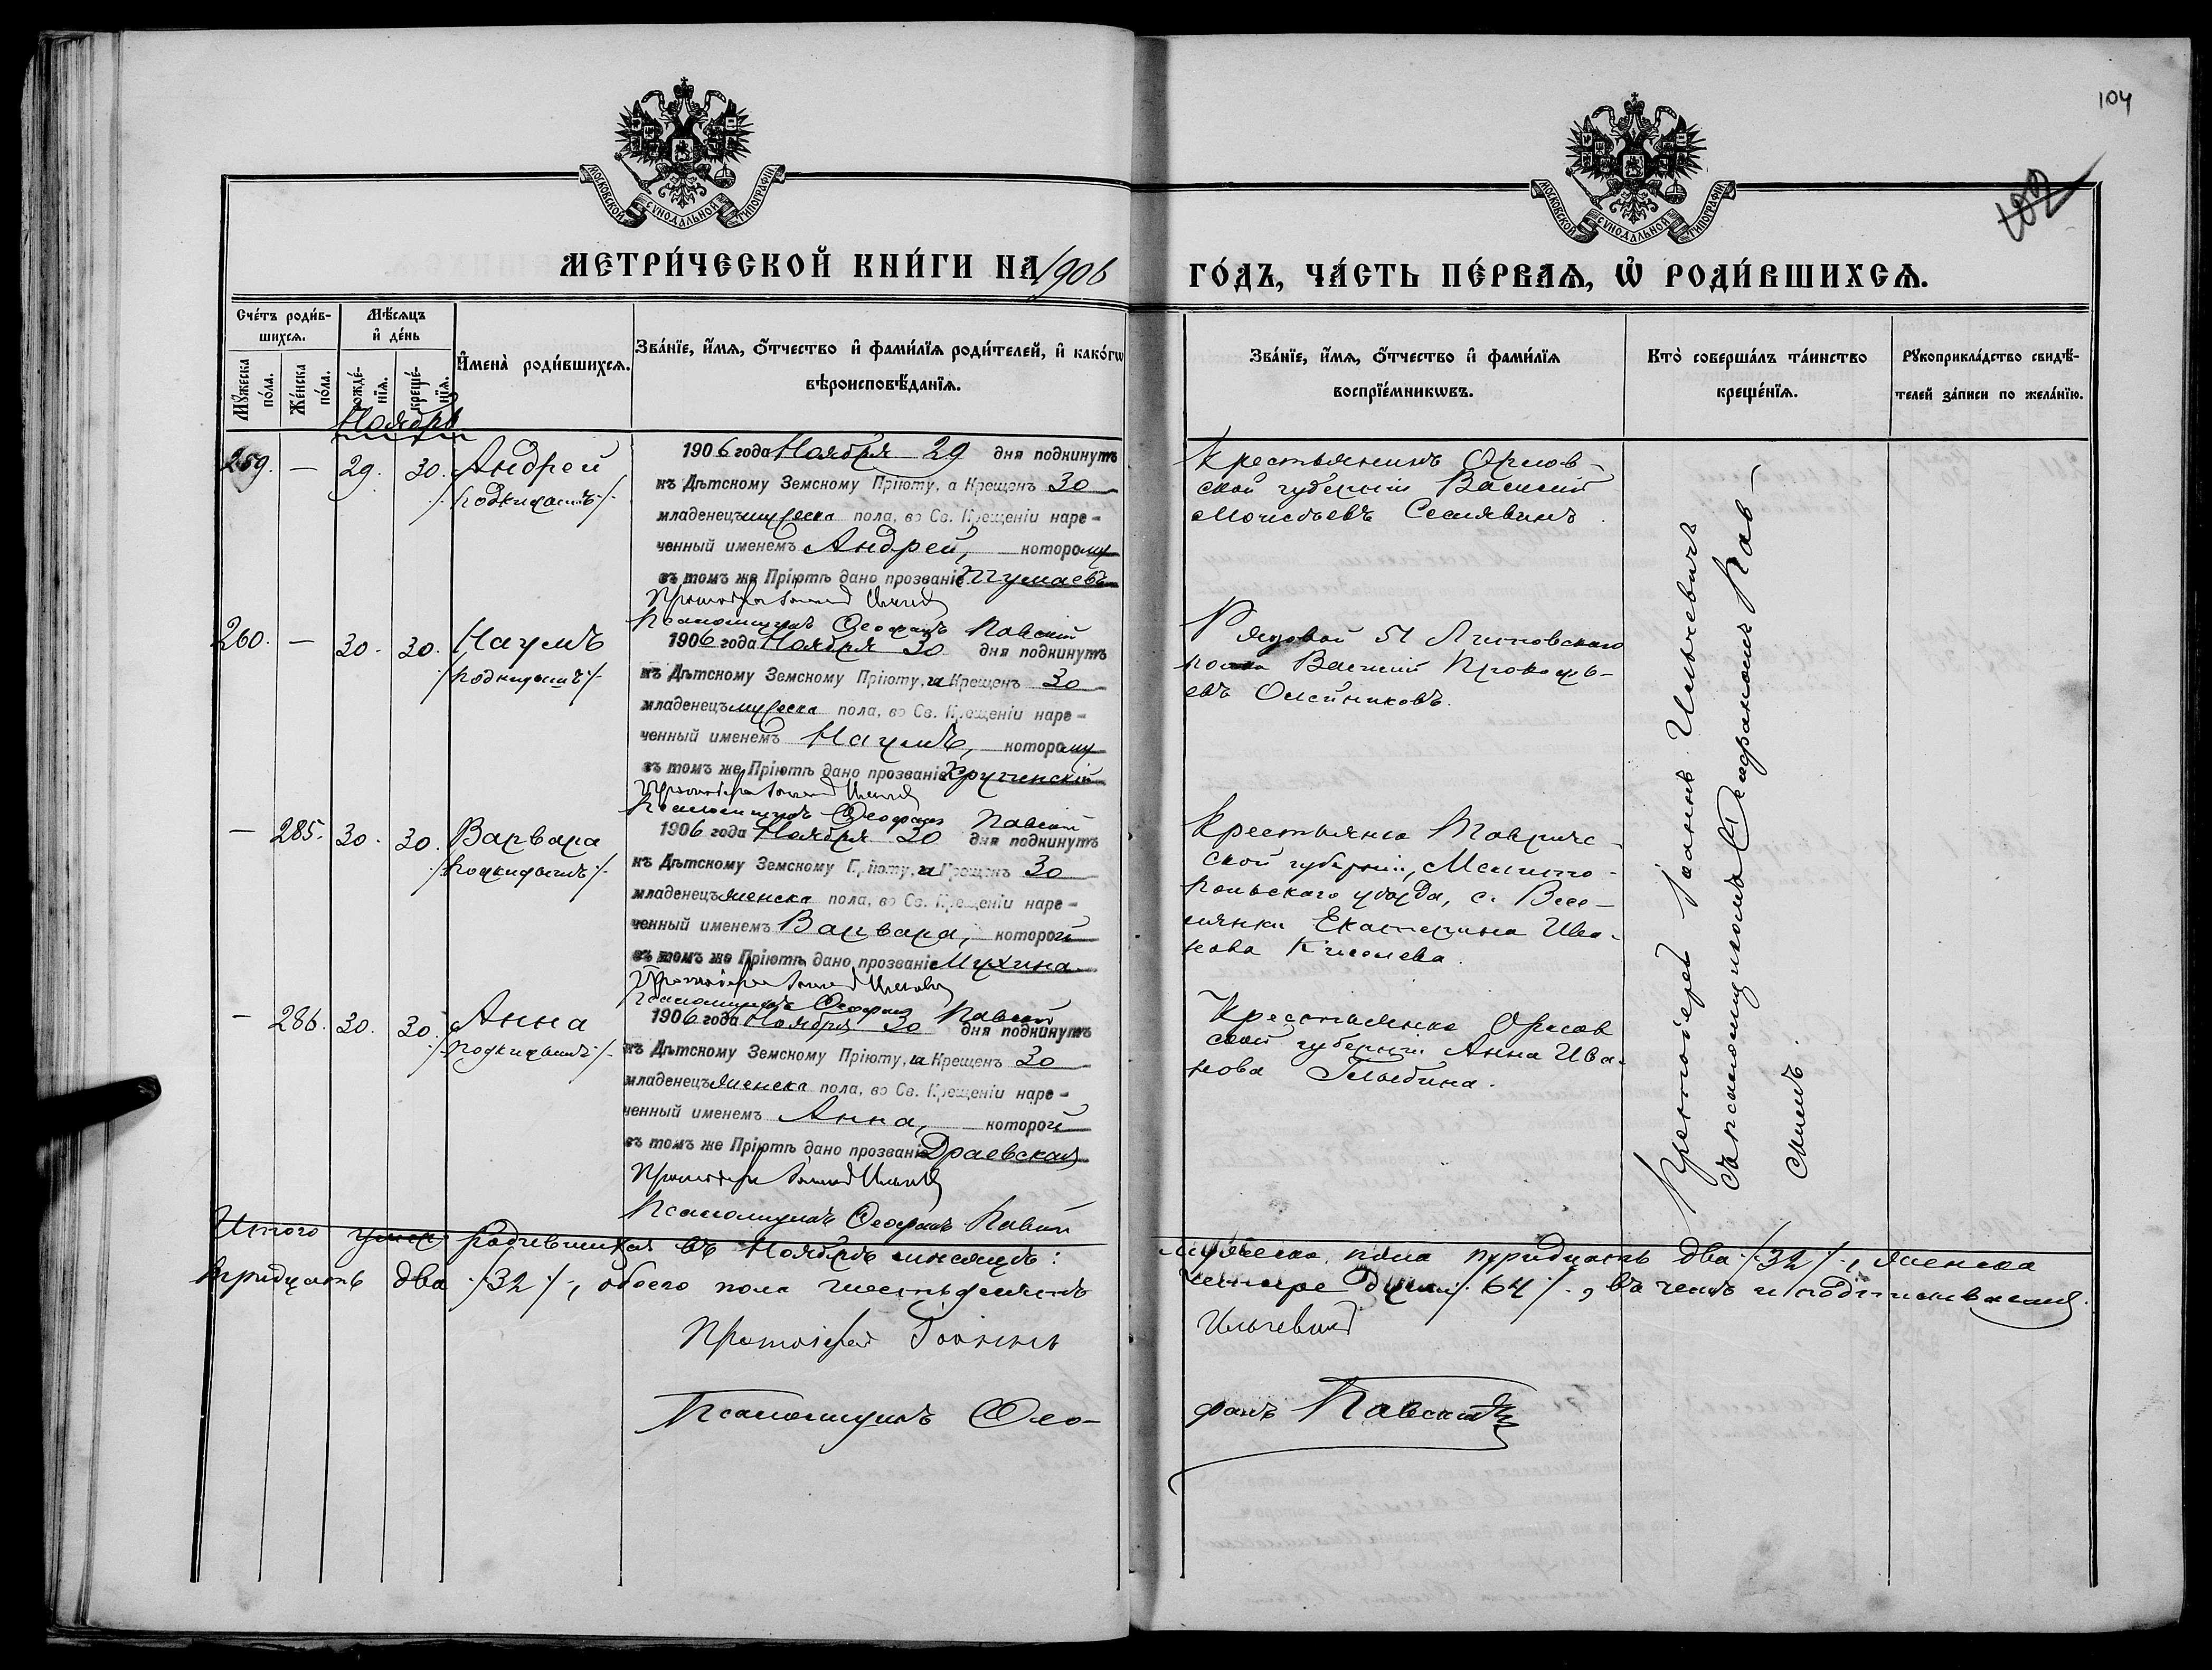 104
102
МОСКОВСКОЙ СУНОДАЛЬНОЙ ТИПОГРАФІИ
МОСКОВСКОЙ СУНОДАЛЬНОЙ ТИПОГРАФІИ
МЕТРИ́ЧЕСКОЙ КНИ́ГИ НА 1906
ГО́ДЪ, ЧА́СТЬ ПЕ́РВАѦ, Ѡ҆ РОДИ́ВШИХСѦ.
Сче́тъ роди́в-
шихсѧ.
Мꙋ́жеска по́ла.
Же́нска по́ла.
Мѣ́сѧцъ
и҆ де́нь
рожде́-
нїѧ.
креще́-
нїѧ.
И҆мена̀ роди́вшихсѧ.
Зва́нїе, и҆́мѧ, ѻ҆́тчество и҆ фами́лїѧ роди́телей, и҆ како́гѡ
вѣроисповѣ́данїѧ.
Зва́нїе, и҆́мѧ, ѻ҆́тчество и҆ фами́лїѧ
воспрїе́мникѡвъ.
Кто̀ соверша́лъ та́инство
креще́нїѧ.
Рꙋкоприкла́дство свидѣ́-
телей за́писи по жела́нїю.
Ноябрь
259. — 29. 30. Андрей
/.подкидышъ/.
1906 года Ноября 29 дня подкинутъ
къ Дѣтскому Земскому Пріюту, а Крещенъ 30
младенецъ мужеска пола, во Св. Крещеніи наре-
ченный именемъ Андрей, которому
въ томъ же Пріютѣ дано прозваніе
Протоіерей Іоаннъ Ильчевичъ
Псаломщикъ Ѳеофанъ Павскій
Крестьянинъ Орлов-
ской губерніи Василій
Сеслявинъ.
260. — 30. 30. Наумъ
/.подкидышъ/.
1906 года Ноября 30 дня подкинутъ
къ Дѣтскому Земскому Пріюту, а Крещенъ 30
младенецъ мужеска пола, во Св. Крещеніи наре-
ченный именемъ Наумъ, которому
въ томъ же Пріютѣ дано прозваніе
Протоіерей Іоаннъ Ильчевичъ
Псаломщикъ Ѳеофанъ Павскій
Рядовой 51 Литовскаго
полка Василій Прокофь-
евъ Олейниковъ.
— 285. 30. 30. Варвара
/.подкидышъ/.
1906 года Ноября 30 дня подкинутъ
къ Дѣтскому Земскому Пріюту, а Крещенъ 30
младенецъ женска пола, во Св. Крещеніи наре-
ченный именемъ Варвара, которой
въ томъ же Пріютѣ дано прозваніе Мухина
Протоіерей Іоаннъ Ильчевичъ
Псаломщикъ Ѳеофанъ Павскій
Крестьянка Тавриче-
ской губерніи, Мелито-
польскаго уѣзда, с. Весе-
лянки Екатерина Ива-
нова Киселева.
— 286. 30. 30. Анна
/.подкидышъ/.
1906 года Ноября 30 дня подкинутъ
къ Дѣтскому Земскому Пріюту, а Крещенъ 30
младенецъ женска пола, во Св. Крещеніи наре-
ченный именемъ Анна, которой
въ томъ же Пріютѣ дано прозваніе Драевская
Протоіерей Іоаннъ Ильчевичъ
Псаломщикъ Ѳеофанъ Павскій
Крестьянка Орлов
ской губерніи Анна Ива-
нова
Протоіерей Іоаннъ Ильчевичъ
съ псаломщикомъ Ѳеофаномъ Пав-
скимъ.
Итого родившихся въ Ноябрѣ мѣсяцѣ: мужеска пола тридцать два /.32/., женска
тридцать два /.32/., обоего пола шестьдесятъ четыре души /.64/., въ чемъ и подписываемся.
Протоіерей Іоаннъ Ильчевичъ
Псаломщикъ Ѳео-
фанъ Павскій